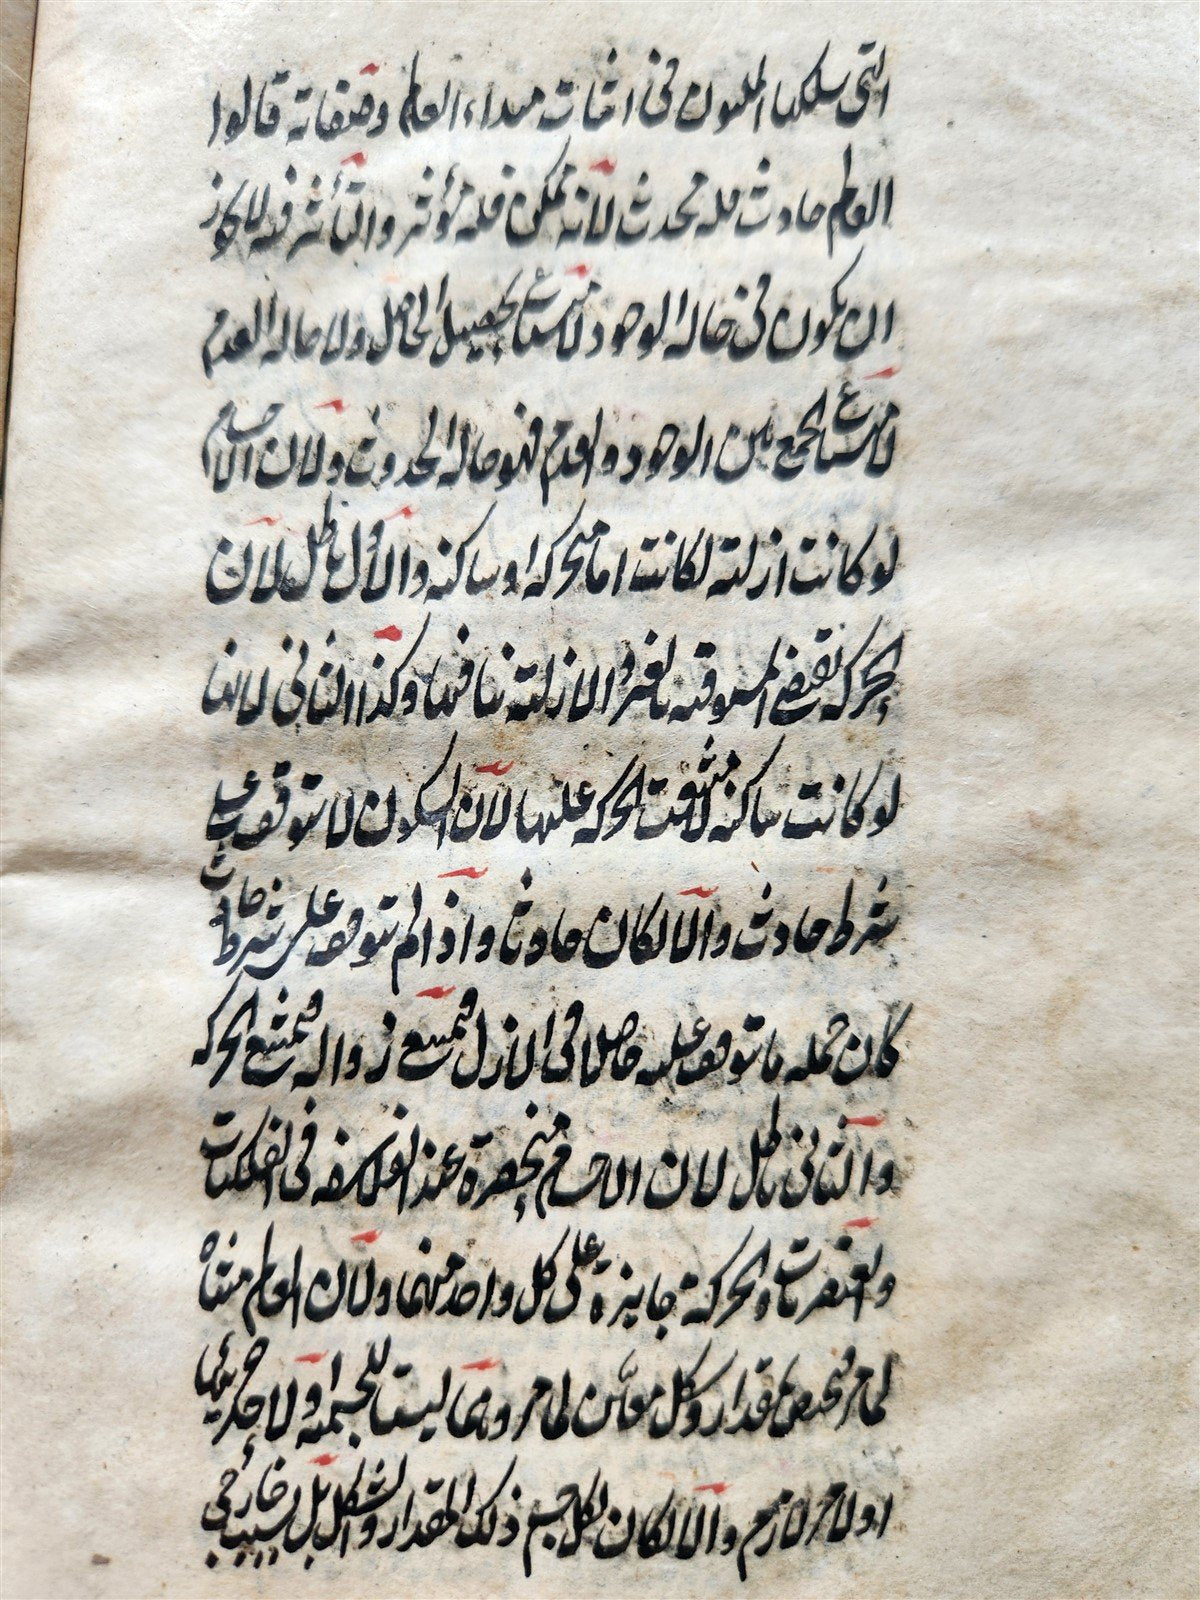 التي سلكها المليون في اثبات مبداء العالم وصفاته قالوا
العالم حادث فله محدث لانه ممكن فله مؤثر والتأثير فيه لا يجوز
ان يكون في حاله الوجود لامتناع تحصيل الحاصل ولا حاله العدم
لامتناع الجمع بين الوجود والعدم فهو حاله الحدوث ولان الاجسام
لو كانت ازلية لكانت اما متحركه او ساكنه والاول باطل لان
الحركه تقتضي المسبوقيه بالغير والازلية تنافيها وكذا الثاني لانها
لو كانت ساكنه لامتنعت الحركه عليها لان السكون لا يتوقف على
شرط حادث والا لكان حادثا واذا لم يتوقف على شرط حادث
كان جمله ما يتوقف عليه حاصلا في الازل فيمتنع زواله فيمتنع الحركه
والثاني باطل لان الاجسام منحصرة عند الفلاسفه في الفلكيات
والعنصريات والحركة جايزة على كل واحد منهما ولان العالم متناه
لما مر فيختص بمقدار وشكل معين لما مر وهما ليستا للجسمية ولا جزئيها
او لامر لازم والا لكان لكل جسم ذلك المقدار والشكل بل بسبب خارجي